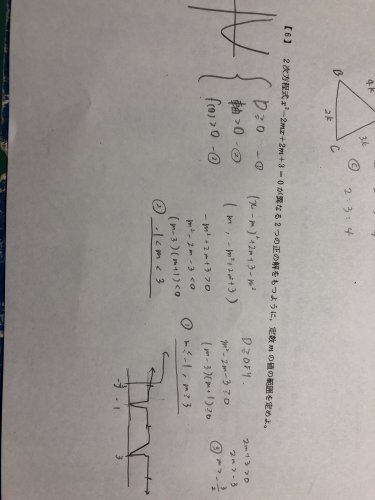 4k
B
2k
3k
C
© 2:3:4
【6】 2次方程式 x²−2mx+2m+3=0が異なる2つの正の解をもつように、定数mの値の範囲を定めよ。
D≧0 −①
軸>0 −②
f(0)>0 −③
(x−m)²+2m+3−m²
(m, −m²+2m+3)
−m²+2m+3>0
m²−2m−3<0
(m−3)(m+1)<0
② −1<m<3
D≧0より
m²−2m−3≧0
(m−3)(m+1)≧0
① m≦−1, m≧3
2m+3>0
2m>−3
③ m>−3/2
−1
3